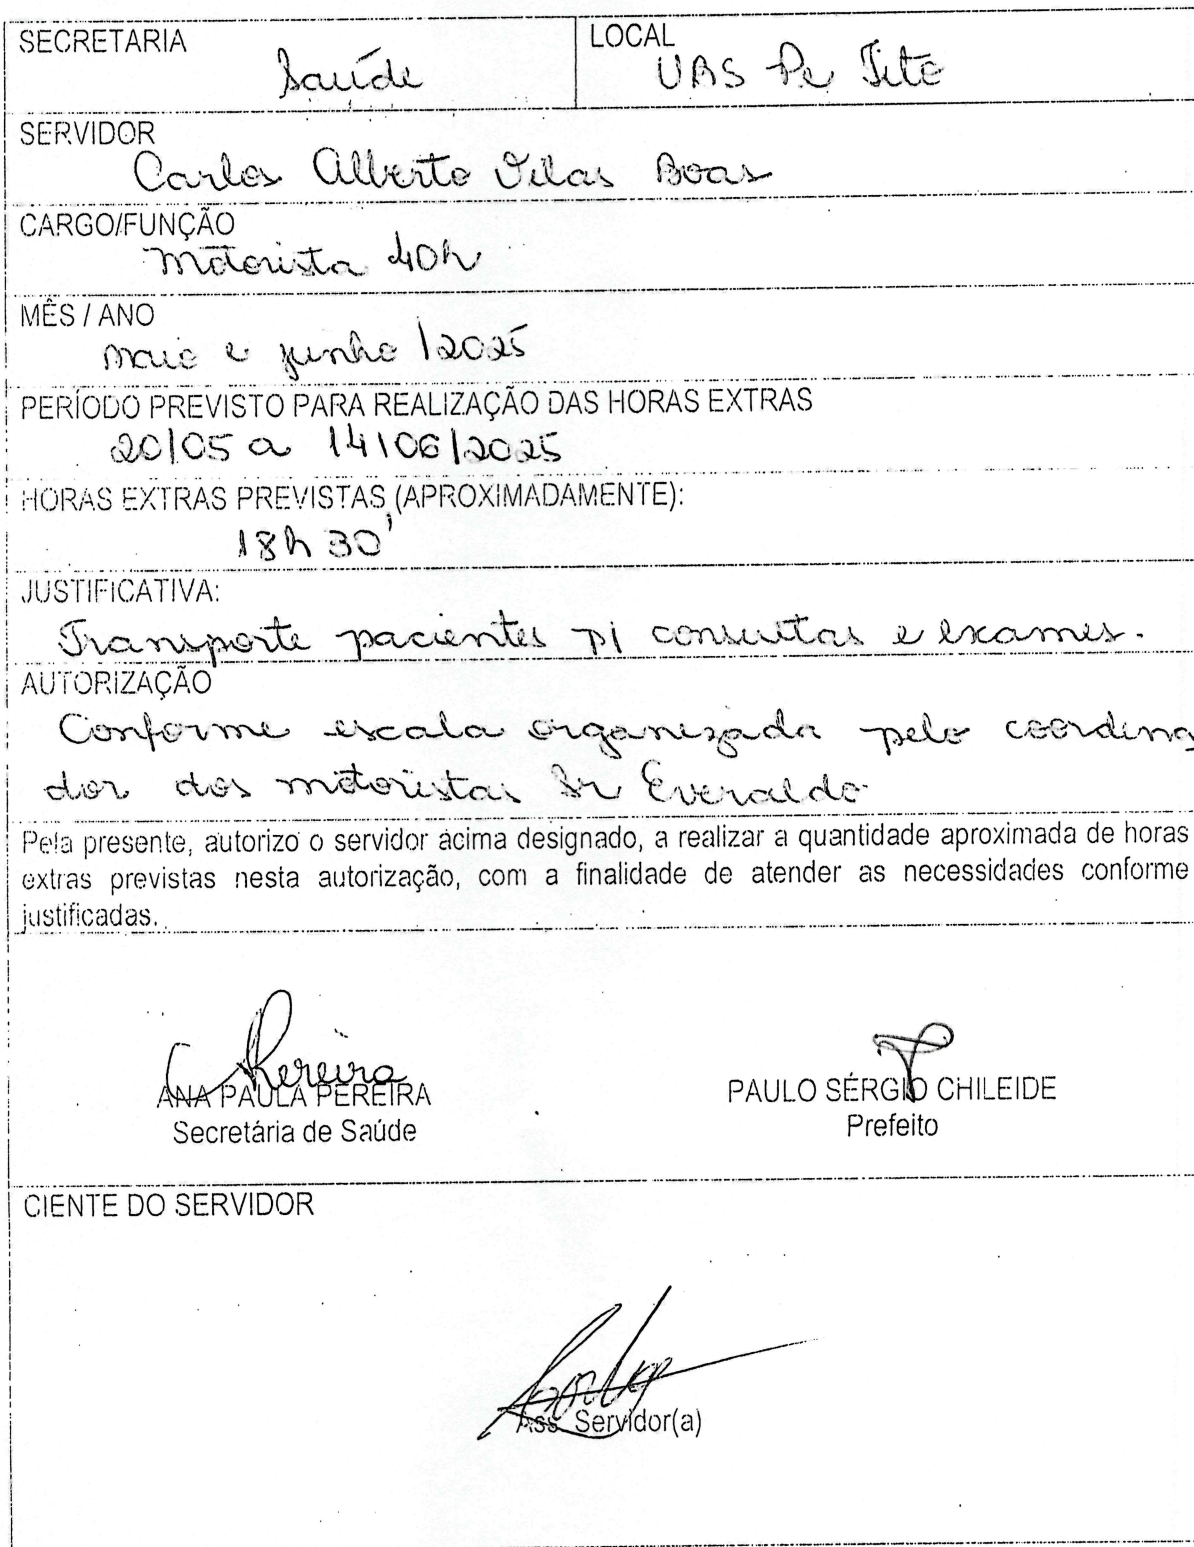 SECRETARIA
Saúde
LOCAL
UBS Pe Tito
SERVIDOR
Carlos Alberto Vilas Boas
CARGO/FUNÇÃO
Motorista 40h
MÊS / ANO
maio e junho/2025
PERÍODO PREVISTO PARA REALIZAÇÃO DAS HORAS EXTRAS
20/05 a 14/06/2025
HORAS EXTRAS PREVISTAS (APROXIMADAMENTE):
18h 30'
JUSTIFICATIVA:
Transporte pacientes p/ consultas e exames.
AUTORIZAÇÃO
Conforme escala organizada pelo coordena
dor dos motoristas Sr Everaldo
Pela presente, autorizo o servidor acima designado, a realizar a quantidade aproximada de horas
extras previstas nesta autorização, com a finalidade de atender as necessidades conforme
justificadas.
Pereira
ANA PAULA PEREIRA
Secretária de Saúde
PAULO SÉRGIO CHILEIDE
Prefeito
CIENTE DO SERVIDOR
Ass. Servidor(a)